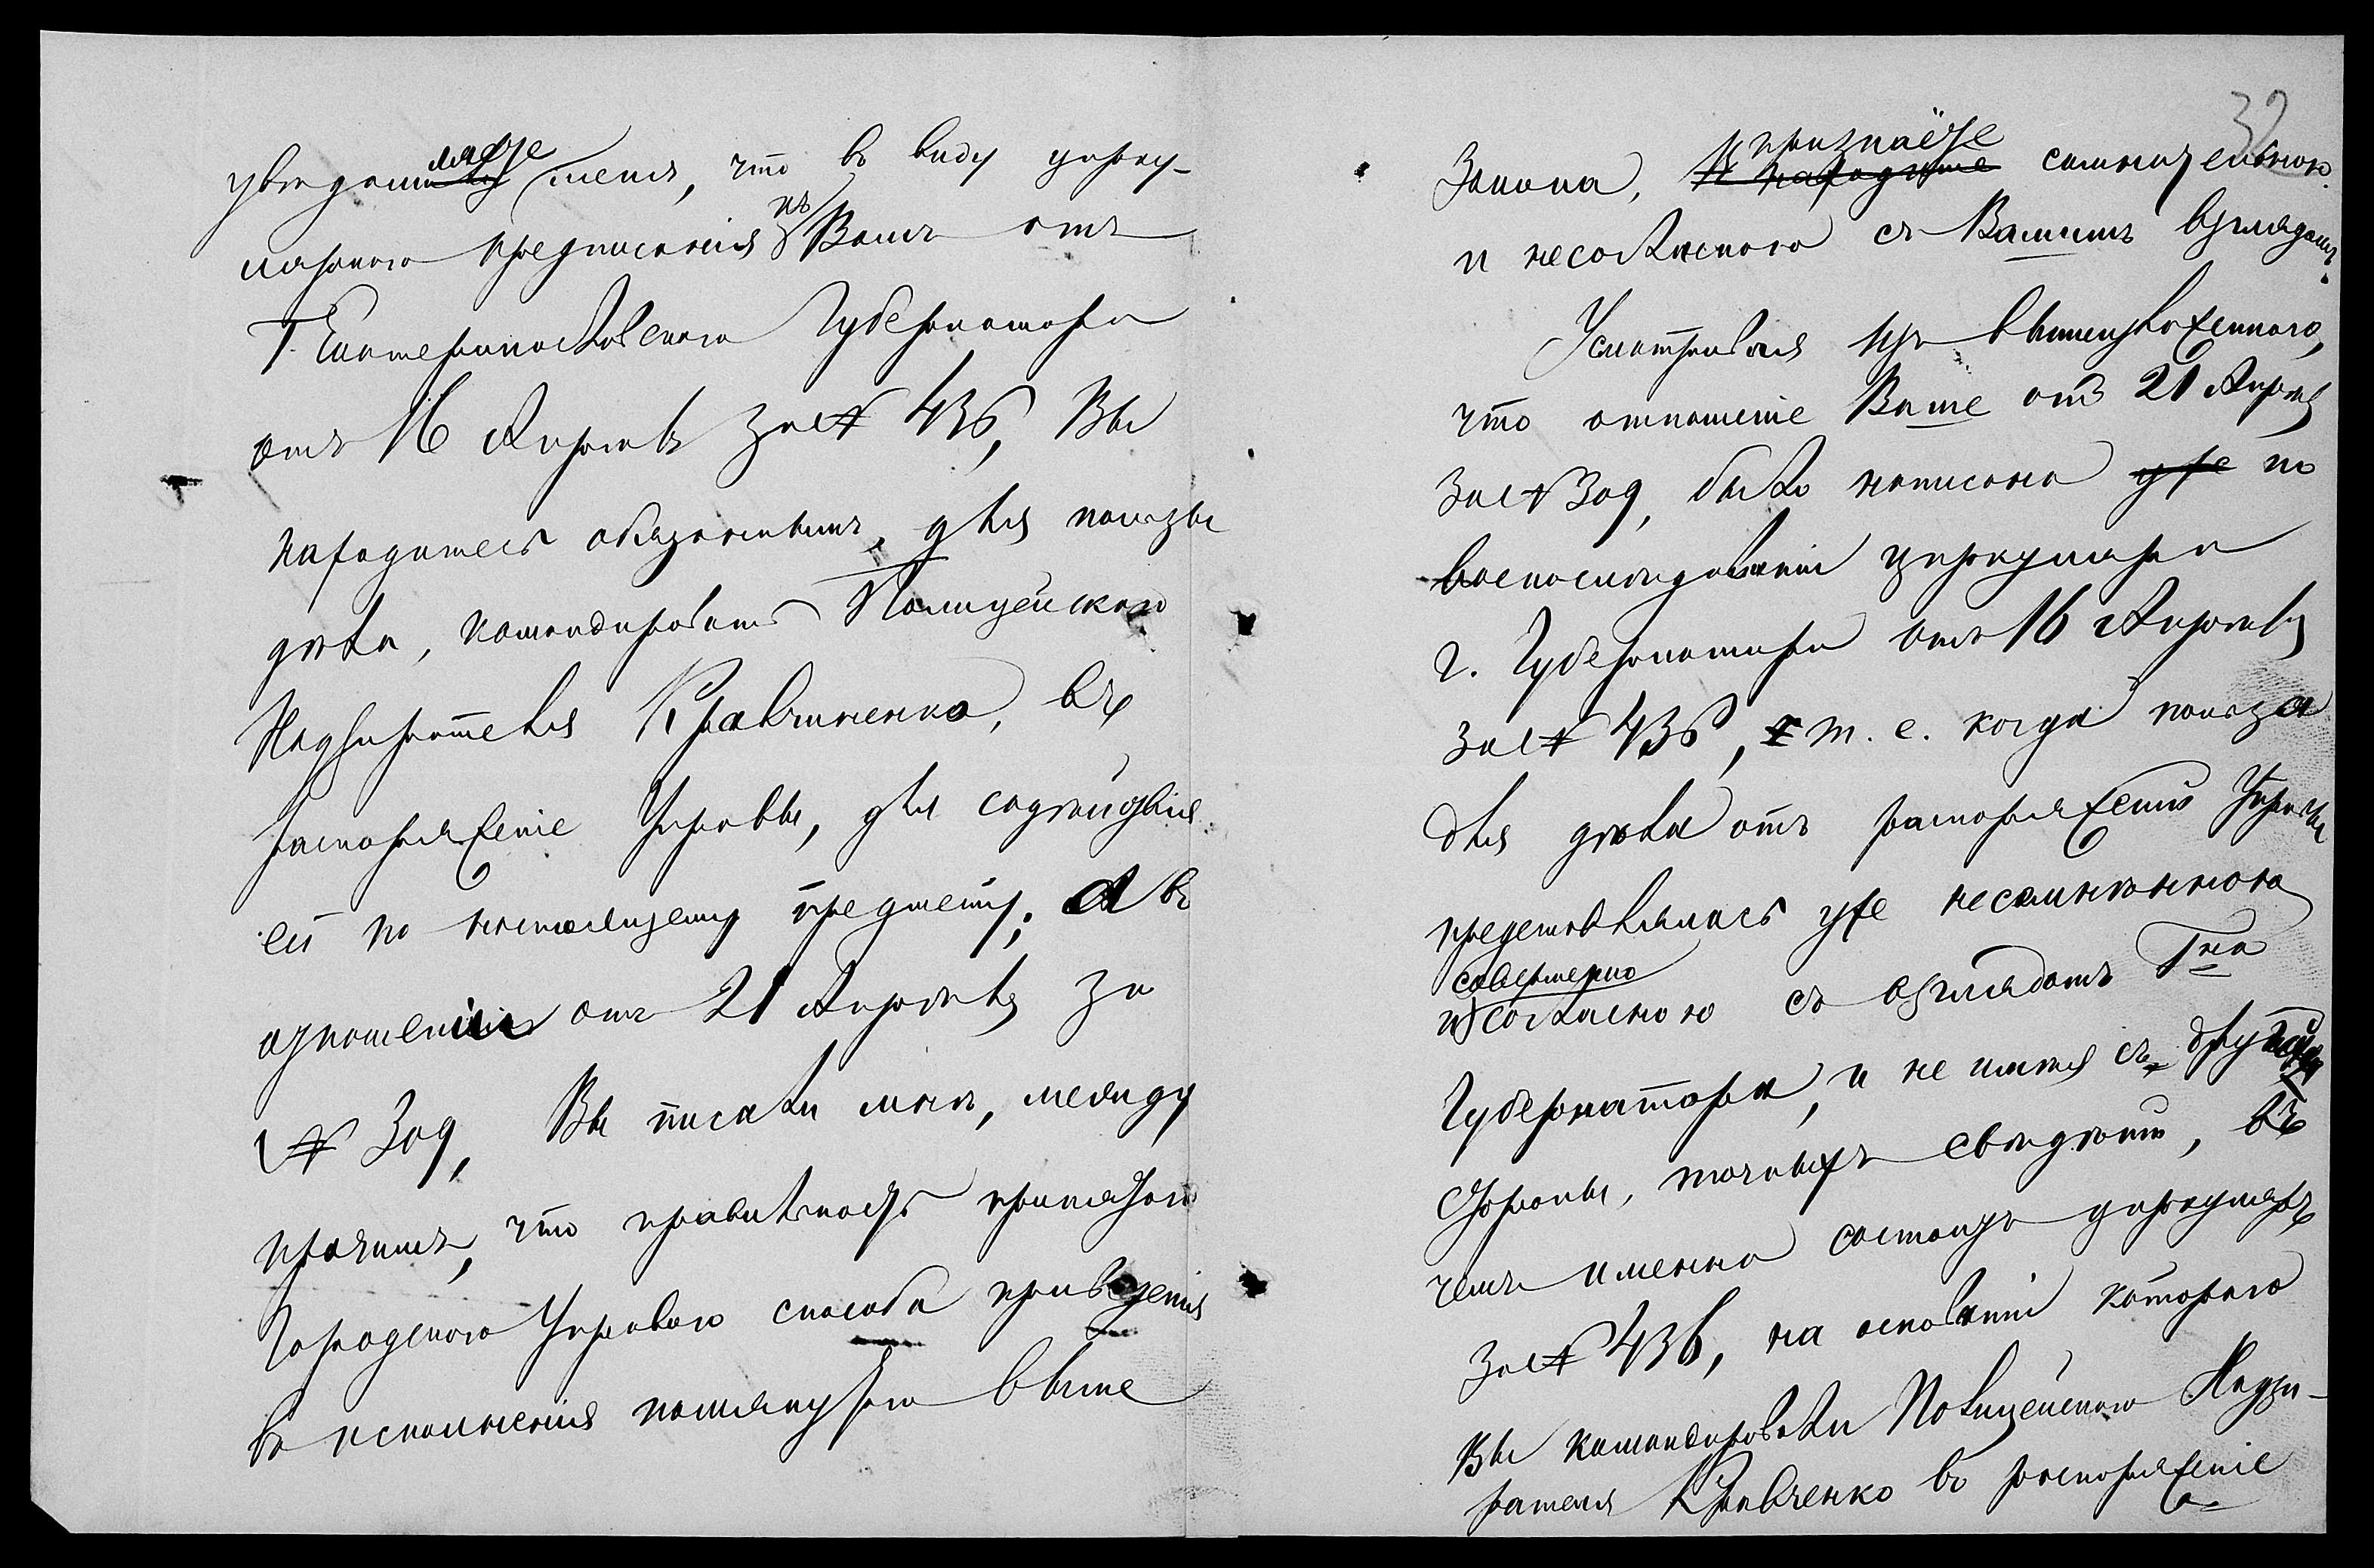 увѣдомляете меня, что въ виду цирку-
лярнаго предписанія къ Вамъ отъ
Г. Екатеринославскаго Губернатора
отъ 16 Апрѣля за № 436, Вы
находитесь обязаннымъ, для пользы
дѣла, командировать Полицейскаго
Надзирателя Кравченко, въ
распоряженіе Управы, для содѣйствія
ей по настоящему предмету; а въ
отношеніи отъ 21 Апрѣля за
№ 309, Вы писали мнѣ, между
прочимъ, что правильность принятаго
Городскою Управою способа приведенія
въ исполненія помянутаго выше
32
Закона, признаёте сомнительною
и несогласною съ Вашимъ взглядомъ.
Усматривая изъ вышеизложеннаго,
что отношеніе Ваше отъ 21 Апрѣля
за № 309, было написано уже по
воспослѣдованіи циркуляра
г. Губернатора отъ 16 Апрѣля
за № 436, т. е. когда польза
для дѣла отъ распоряженій Управы
представлялась уже несомнѣнною
и совершенно согласною съ взглядомъ Гна
Губернатора, и не имѣя съ другой
стороны, точныхъ свѣдѣній, въ
чемъ именно состоитъ циркуляръ
за № 436, на основаніи котораго
Вы командировали Полицейскаго Надзи-
рателя Кравченко въ распоряженіе